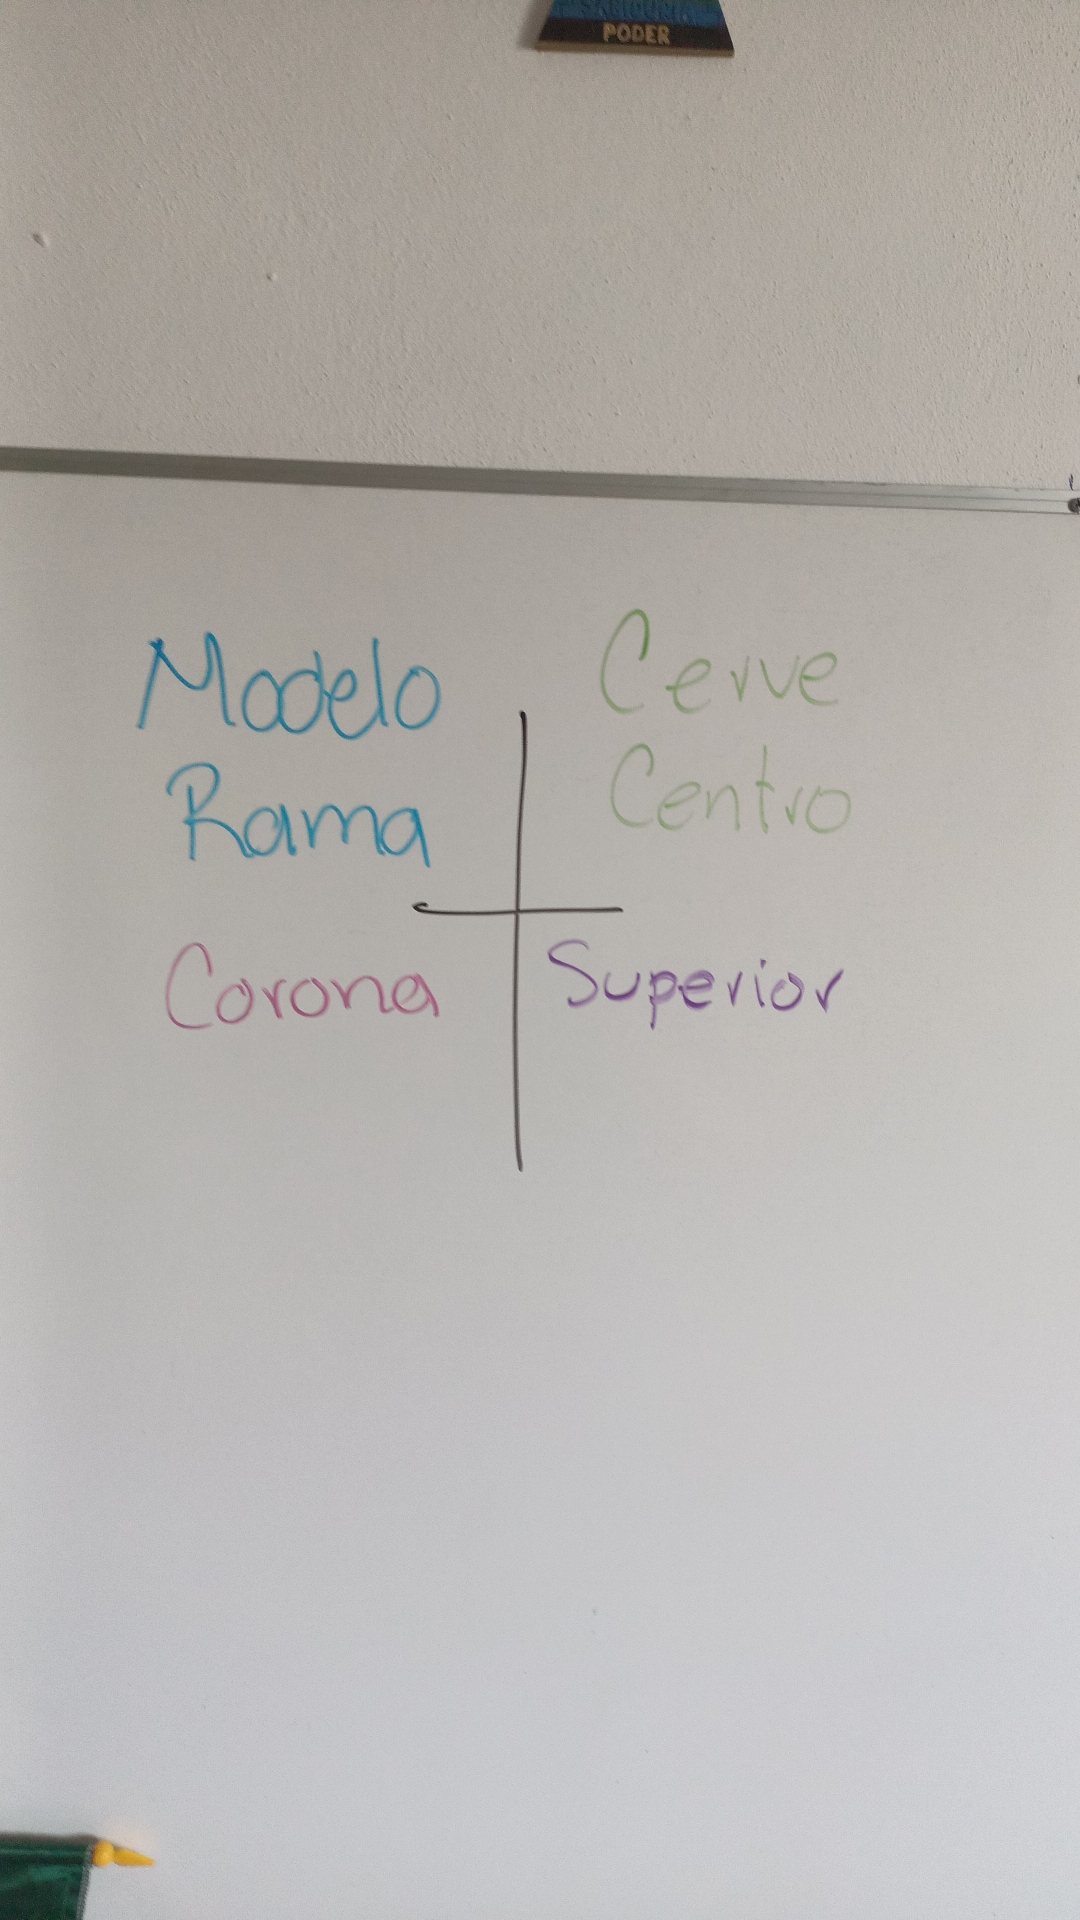 PODER
Modelo
Rama
Cerve
Centro
Corona
Superior